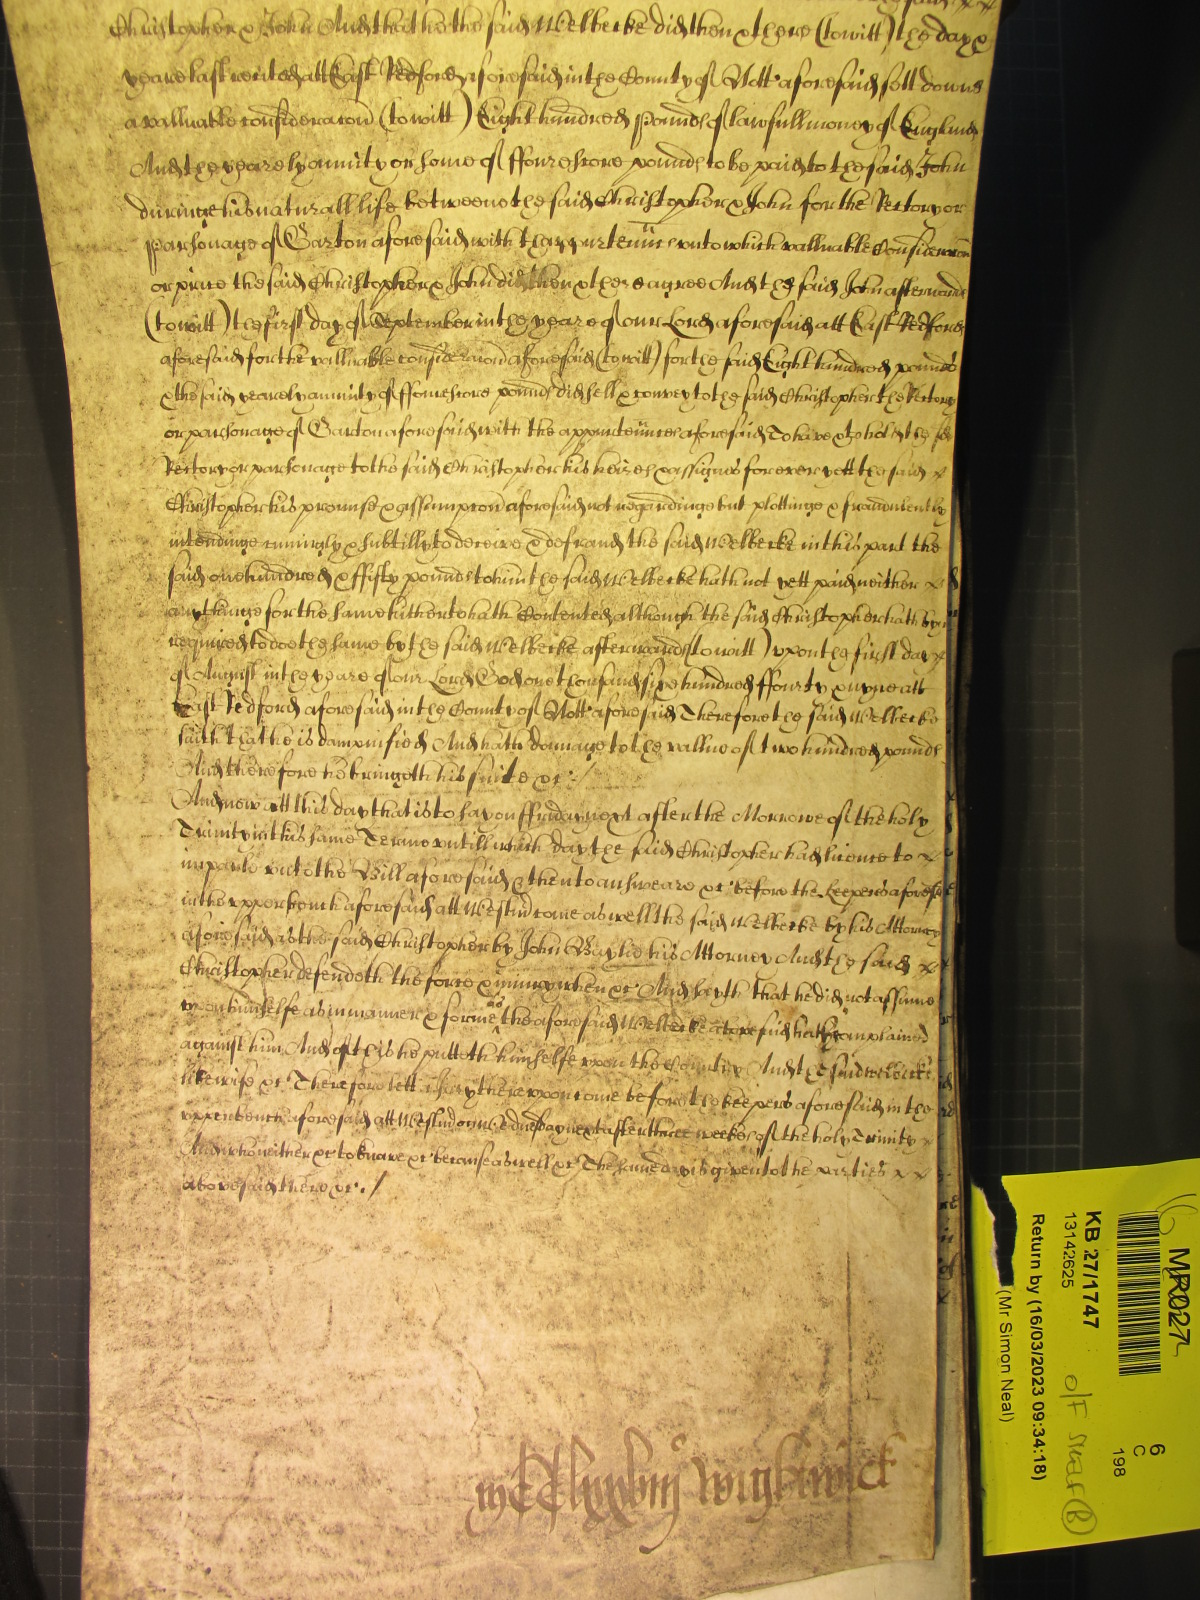 Christopher & John And that he the said Welbecke did then & there (to witt) the day &
yeare last recited att East Redford aforesaid in the County of Nott aforesaid sett downe
a valluable consideracon (to witt) Eight hundred pounds of lawfull money of England
And the yearely annuity or some of ffoure score pounds to be paid to the said John
duringe his naturall life betweene the said Christopher & John for the Rectory or
parsonage of Garton aforesaid with thappurtenncs unto which valluable Consideracon
or price the said Christopher & John did then & there agree And the said John afterwards
(to witt) the first day of September in the yeare of our Lord aforesaid att East Redford
aforesaid for the valluable consideracon aforesaid (to witt) for the said Eight hundred pounds
& the said yearely annuity of ffoure score pounds did sell & convey to the said Christopher the Rectory
or parsonage of Garton aforesaid with the appurtennces aforesaid To have & to hold the sd
Rectory or parsonage to the said Christopher his heires & assignes for ever yett the said x
Christopher his promise & assumpcon aforesaid not regardinge but plottinge & fraudulently
intendinge cuningly & subtilly to deceive & defraud the said Welbecke in this part the
said one hundred & ffifty pounds to him the said Welbecke hath not yett paid neither x
any thinge for the same hitherto hath Contented although the said Christopher hath byn
required to doe the same by the said Welbecke afterwards (to witt) upon the first day x
of August in the yeare of our Lord God one thousand sixe hundred ffourty & nyne att
East Redford aforesaid in the County of Nott aforesaid Therefore the said Welbecke
saith that he is dampnified And hath domage to the vallue of two hundred pounds
And therefore he bringeth his suite &c /
And now att this day that is to say on ffriday next after the Morrowe of the holy
Trinity in this same Terme untill which day the said Christopher had licence to x
imparle unto the Bill aforesaid & then to answeare &c before the keepers aforesaid
in the upper bench aforesaid att Westm come as well the said Welbecke by his Attorney
aforesaid as the said Christopher by John Baylie his Attorney And the said x
Christopher defendeth the force & iniury when &c And sayth that he did not assume
upon himselfe as in manner & forme as the aforesaid Welbecke above said hath complained
against him And of this he putteth himselfe upon the Country And the said Welbecke
likewise &c Therefore lett a Jury thereupon come before the keepers aforesaid in the
upper bench aforesaid att Westm on Wednesday next after three weekes of the holy Trinity x
And who neither &c to knowe &c because as well &c The same day is given to the parties x x
abovesaid there &c /
Wightwick
MR027
6
C
198
KB 27/1747
13142625
O/F
Return by (16/03/2023 09:34:18)
(Mr Simon Neal)